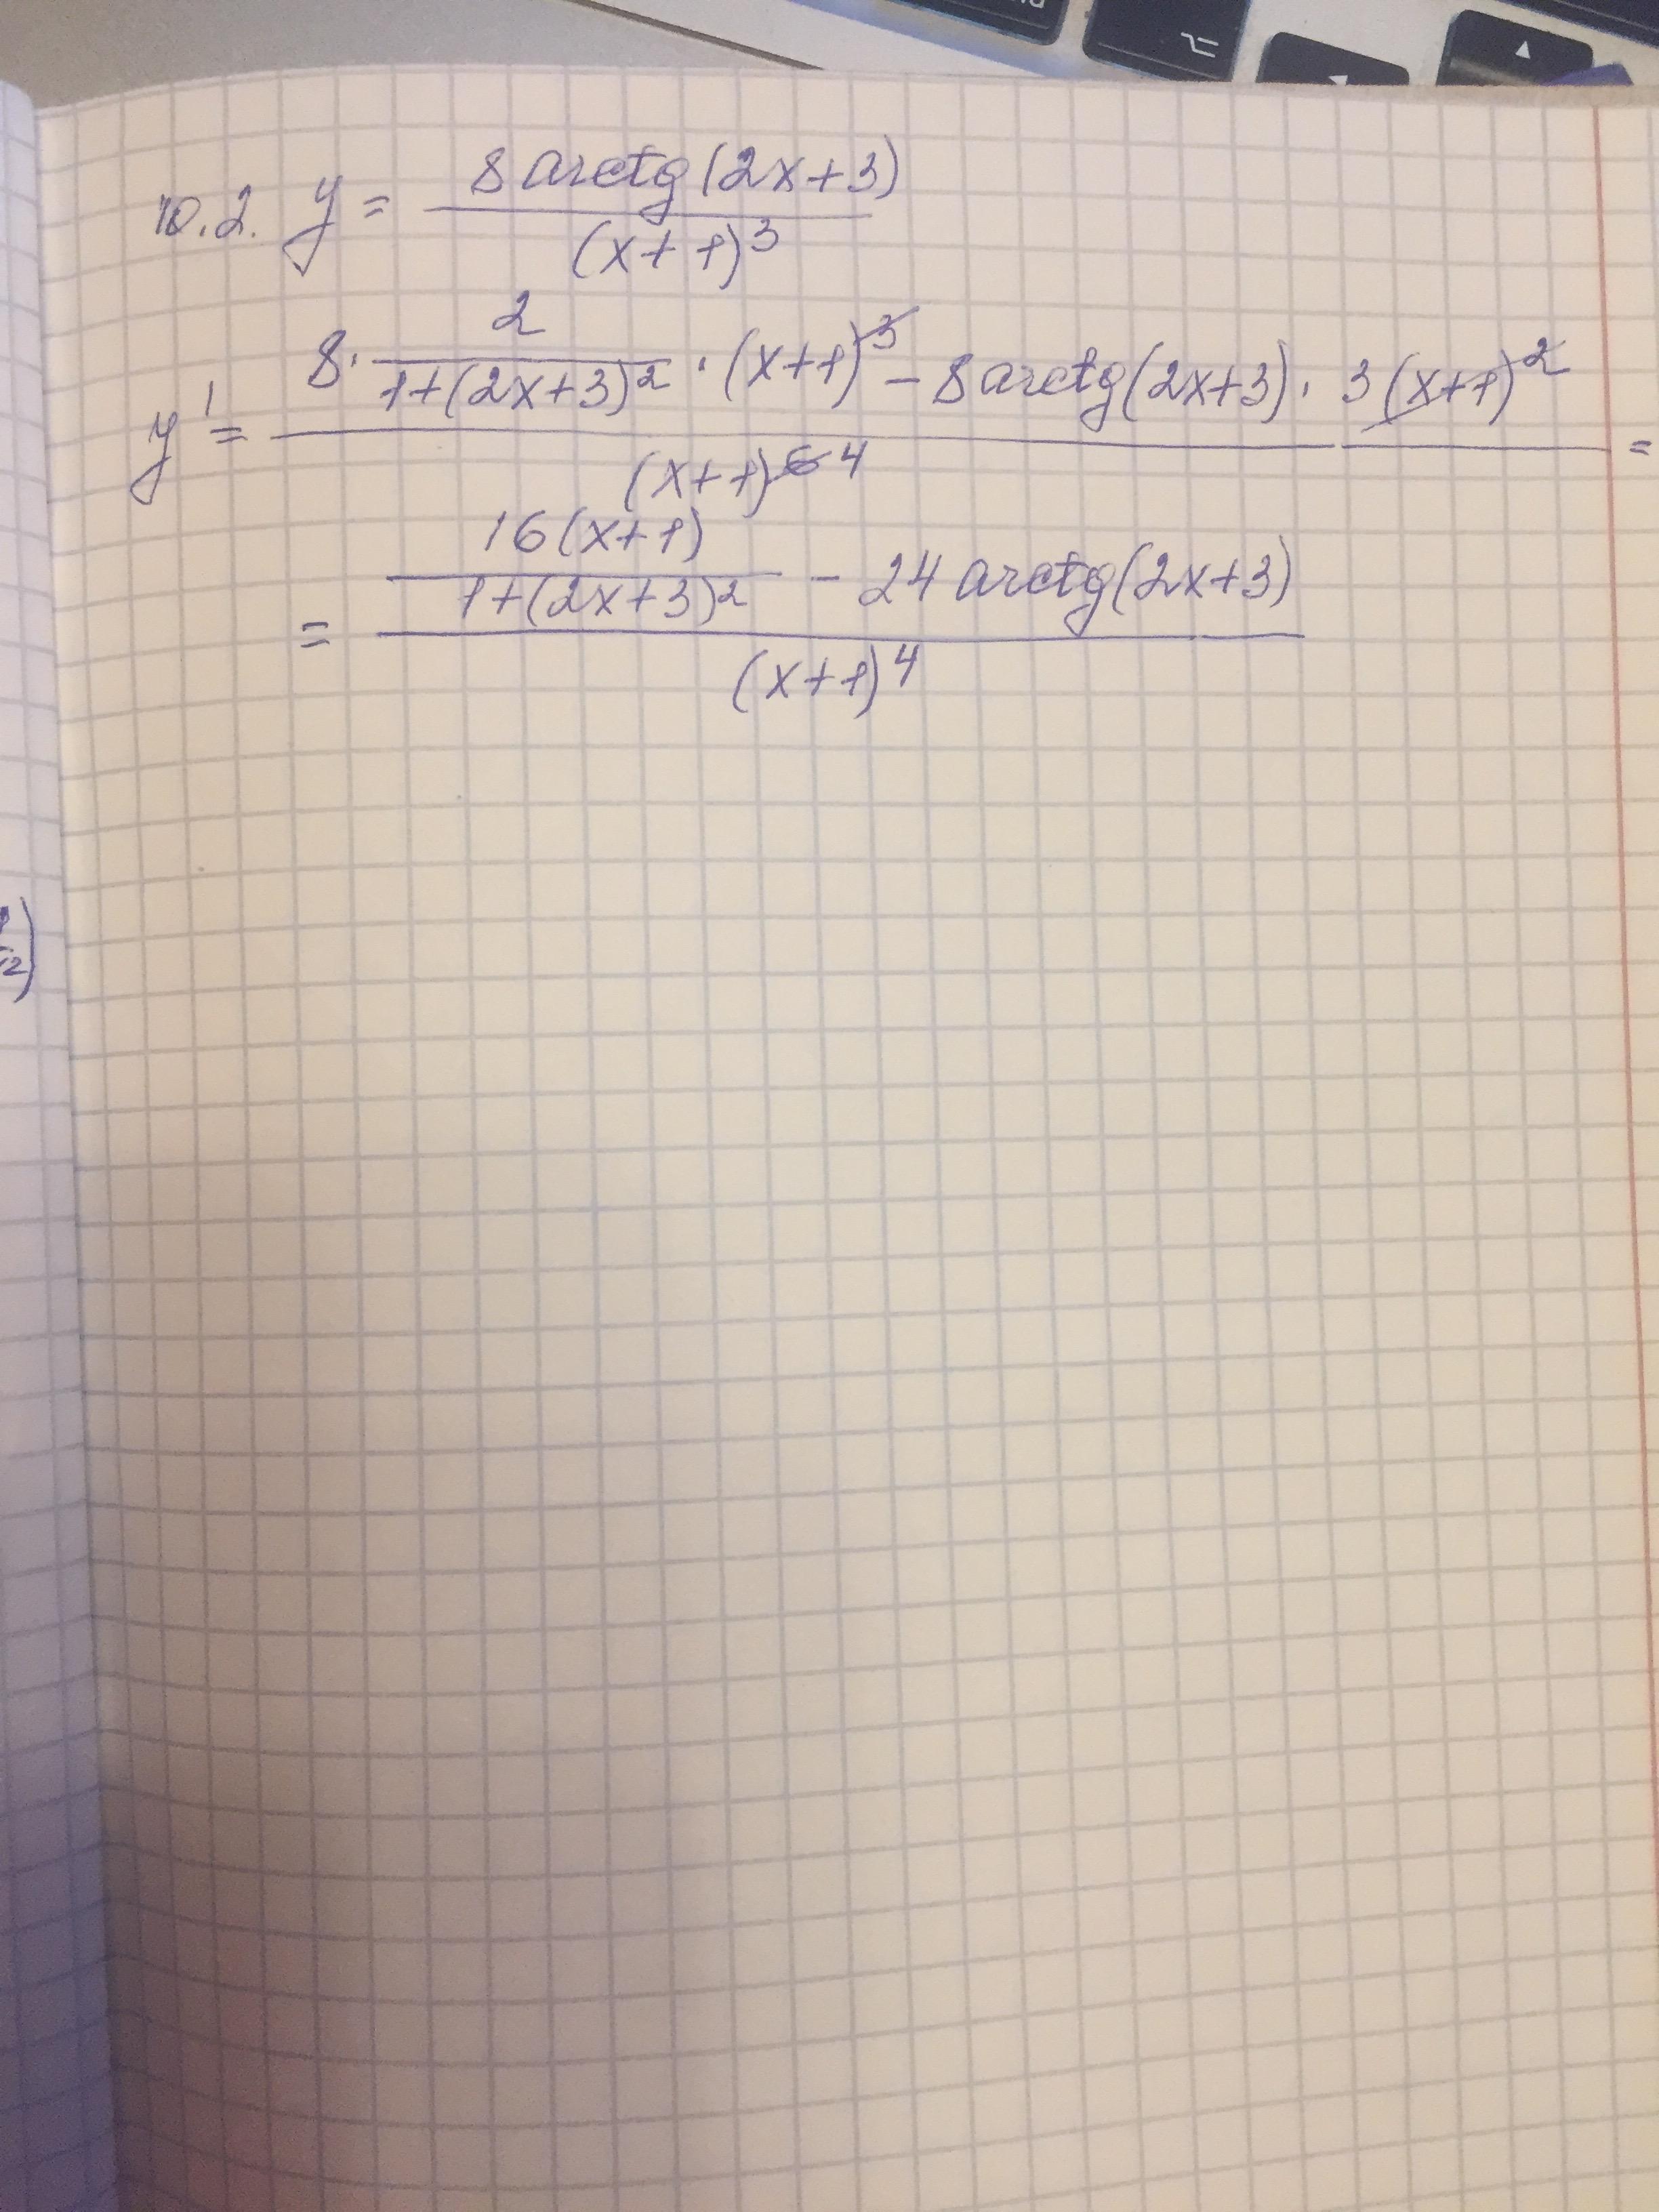 10.2. y = 8 arctg(2x+3) / (x+1)^3
y' = (8 · 2 / (1+(2x+3)^2) · (x+1)^3 − 8 arctg(2x+3) · 3(x+1)^2) / (x+1)^6 4 =
= (16(x+1) / (1+(2x+3)^2) − 24 arctg(2x+3)) / (x+1)^4